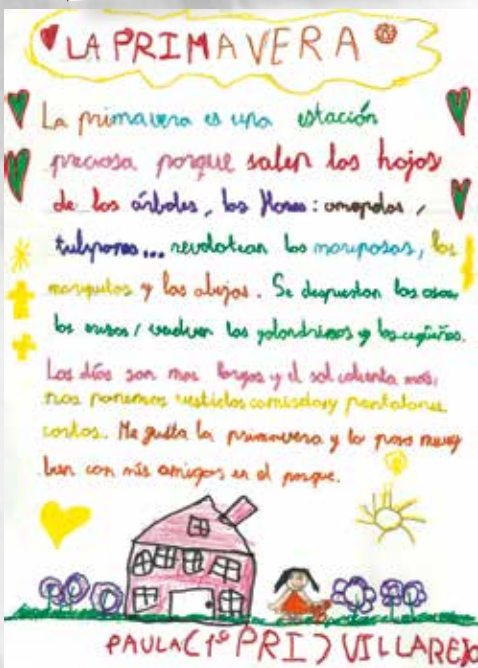 LA PRIMAVERA
La primavera es una estación
preciosa porque salen las hojas
de los árboles, las flores: amapolas,
tulipanes... revolotean las mariposas, las
mariquitas y las abejas. Se despiertan los osos,
los / vuelven las golondrinas y las cigüeñas.
Los días son mas largos y el sol calienta más,
nos ponemos vestidos camisetas y pantalones
cortos. Me gusta la primavera y lo paso muy
bien con mis amigos en el parque.
PAULA (1º PRI) VILLAREJO